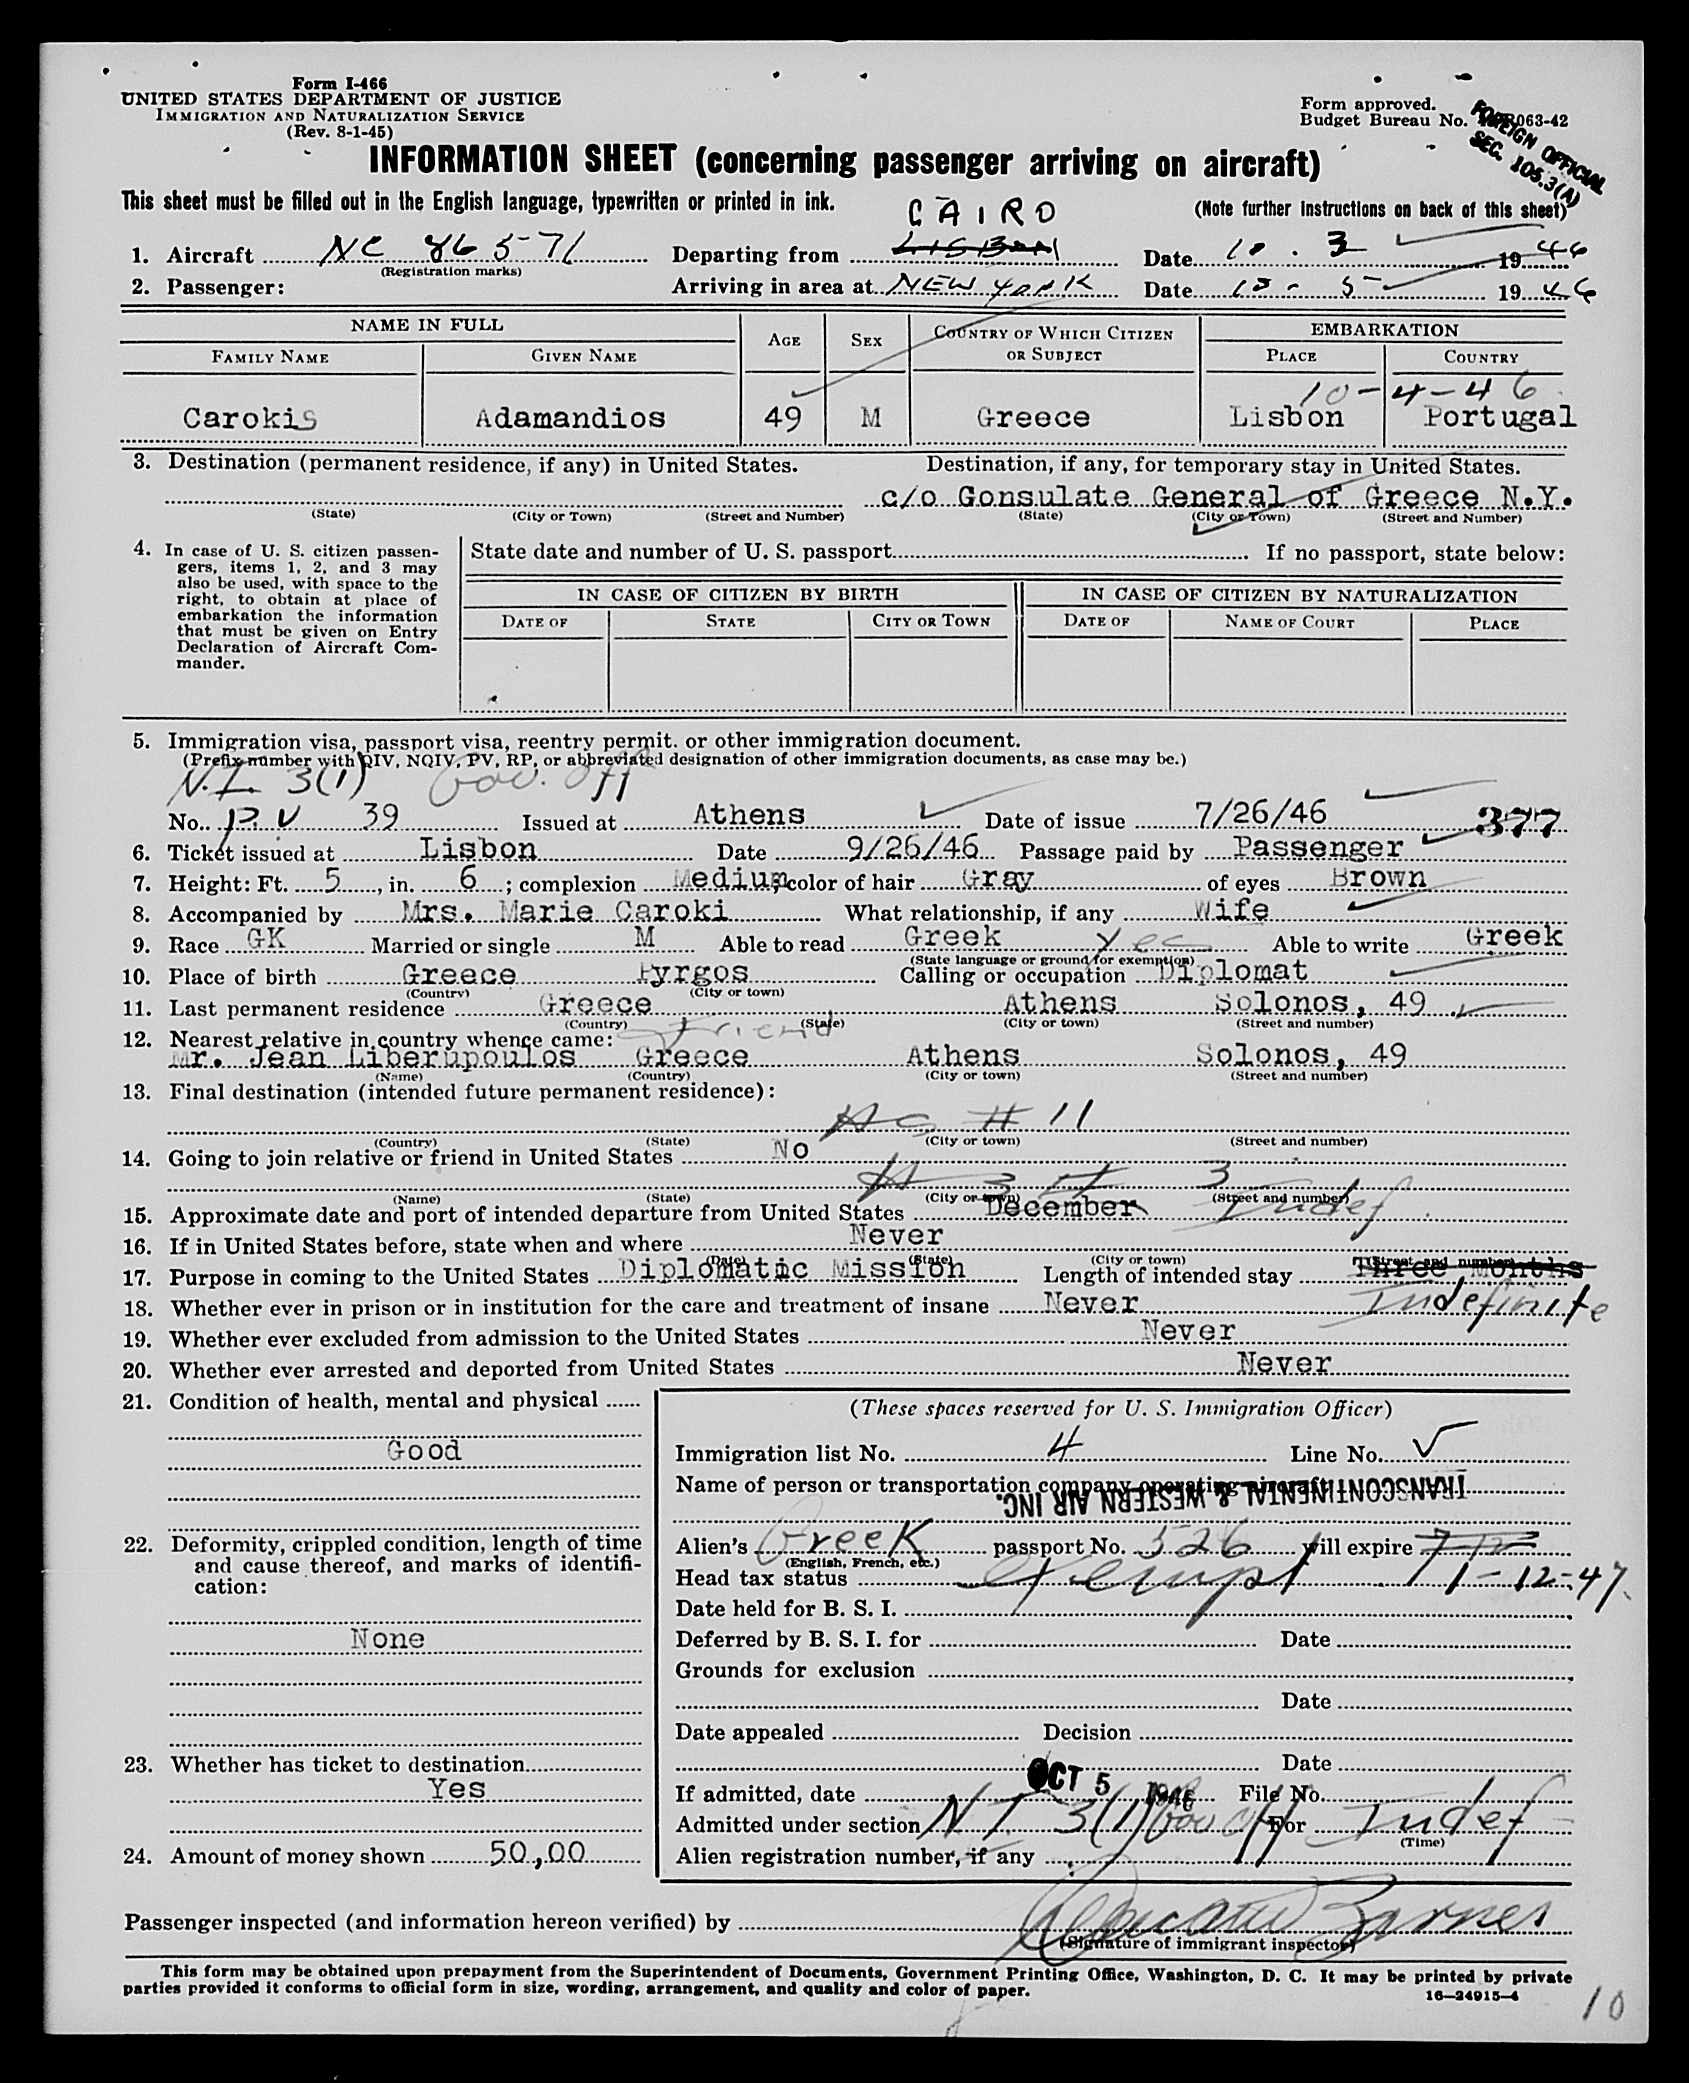 Form I-466
UNITED STATES DEPARTMENT OF JUSTICE
IMMIGRATION AND NATURALIZATION SERVICE
(Rev. 8-1-45)
Form approved.
Budget Bureau No. 063-42
FOREIGN OFFICIAL
SEC. 105.3(A)
INFORMATION SHEET (concerning passenger arriving on aircraft)
This sheet must be filled out in the English language, typewritten or printed in ink.
(Note further instructions on back of this sheet)
CAIRO
1. Aircraft NC 86571 Departing from LISBON Date 10 . 3 1946
(Registration marks)
2. Passenger: Arriving in area at NEW YORK Date 10 - 5 1946
NAME IN FULL AGE SEX COUNTRY OF WHICH CITIZEN OR SUBJECT EMBARKATION
FAMILY NAME GIVEN NAME PLACE COUNTRY
10-4-46
Carokis Adamandios 49 M Greece Lisbon Portugal
3. Destination (permanent residence, if any) in United States. Destination, if any, for temporary stay in United States.
c/o Gonsulate General of Greece N.Y.
(State) (City or Town) (Street and Number) (State) (City or Town) (Street and Number)
4. In case of U. S. citizen passen-
gers, items 1, 2, and 3 may
also be used, with space to the
right, to obtain at place of
embarkation the information
that must be given on Entry
Declaration of Aircraft Com-
mander.
State date and number of U. S. passport If no passport, state below:
IN CASE OF CITIZEN BY BIRTH IN CASE OF CITIZEN BY NATURALIZATION
DATE OF STATE CITY OR TOWN DATE OF NAME OF COURT PLACE
5. Immigration visa, passport visa, reentry permit, or other immigration document.
(Prefix number with QIV, NQIV, PV, RP, or abbreviated designation of other immigration documents, as case may be.)
N.I. 3(1) Gov. Off
No. PV 39 Issued at Athens Date of issue 7/26/46 377
6. Ticket issued at Lisbon Date 9/26/46 Passage paid by Passenger
7. Height: Ft. 5, in. 6; complexion Medium; color of hair Gray of eyes Brown
8. Accompanied by Mrs. Marie Caroki What relationship, if any Wife
9. Race GK Married or single M Able to read Greek Yes Able to write Greek
(State language or ground for exemption)
10. Place of birth Greece Pyrgos Calling or occupation Diplomat
(Country) (City or town)
11. Last permanent residence Greece Athens Solonos, 49
(Country) (State) (City or town) (Street and number)
12. Nearest relative in country whence came: Friend
Mr. Jean Liberupoulos Greece Athens Solonos, 49
(Name) (Country) (City or town) (Street and number)
13. Final destination (intended future permanent residence):
# 11
(Country) (State) (City or town) (Street and number)
14. Going to join relative or friend in United States No
(Name) (State) (City or town) (Street and number)
15. Approximate date and port of intended departure from United States December Indef
16. If in United States before, state when and where Never
(Date) (State) (City or town) (Street and number)
17. Purpose in coming to the United States Diplomatic Mission Length of intended stay Three Months
18. Whether ever in prison or in institution for the care and treatment of insane Never Indefinite
19. Whether ever excluded from admission to the United States Never
20. Whether ever arrested and deported from United States Never
21. Condition of health, mental and physical
Good
22. Deformity, crippled condition, length of time
and cause thereof, and marks of identifi-
cation:
None
23. Whether has ticket to destination
Yes
24. Amount of money shown 50,00
(These spaces reserved for U. S. Immigration Officer)
Immigration list No. 4 Line No.
Name of person or transportation company operating aircraft
TRANSCONTINENTAL & WESTERN AIR INC.
Alien's Greek passport No. 526 will expire
(English, French, etc.)
Head tax status exempt 1-12-47
Date held for B. S. I.
Deferred by B. S. I. for Date
Grounds for exclusion
Date
Date appealed Decision
Date
If admitted, date OCT 5 1946 File No.
Admitted under section NI 3(1) Gov Off For Indef
(Time)
Alien registration number, if any
Passenger inspected (and information hereon verified) by Barnes
(Signature of immigrant inspector)
This form may be obtained upon prepayment from the Superintendent of Documents, Government Printing Office, Washington, D. C. It may be printed by private
parties provided it conforms to official form in size, wording, arrangement, and quality and color of paper.
16-24915-4
10